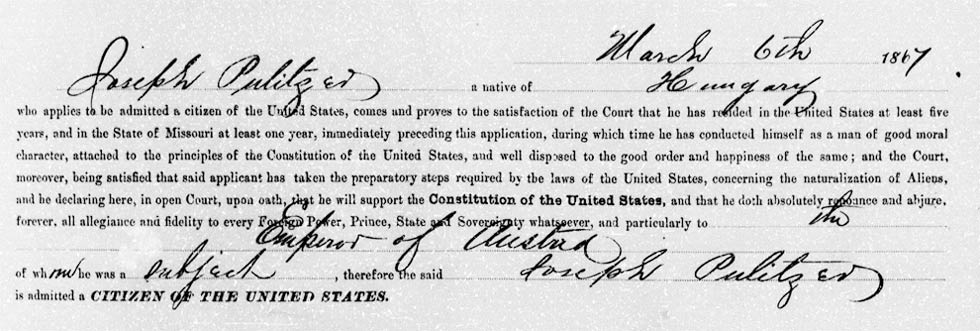 March 6th 1867.
Joseph Pulitzer a native of Hungary
who applies to be admitted a citizen of the United States, comes and proves to the satisfaction of the Court that he has resided in the United States at least five
years, and in the State of Missouri at least one year, immediately preceding this application, during which time he has conducted himself as a man of good moral
character, attached to the principles of the Constitution of the United States, and well disposed to the good order and happiness of the same; and the Court,
moreover, being satisfied that said applicant has taken the preparatory steps required by the laws of the United States, concerning the naturalization of Aliens,
and he declaring here, in open Court, upon oath, that he will support the Constitution of the United States, and that he doth absolutely renounce and abjure,
forever, all allegiance and fidelity to every Foreign Power, Prince, State and Sovereignty whatsoever, and particularly to the
Emperor of Austria
of whom he was a subject, therefore the said Joseph Pulitzer
is admitted a CITIZEN OF THE UNITED STATES.